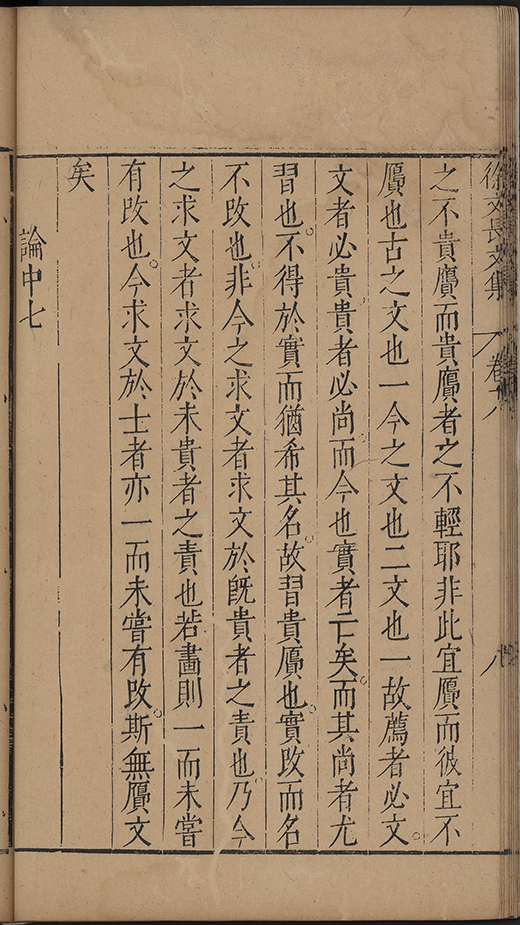 徐文長文集 卷十八 八
之不貴贋而貴贋者之不輕耶非此宜贋而彼宜不
贋也古之文也一今之文也二文也一故薦者必文
文者必貴貴者必尚而今也實者亡矣而其尚者尤
習也不得於實而猶希其名故習貴贋也實改而名
不改也非今之求文者求文於旣貴者之責也乃今
之求文者求文於未貴者之責也若畵則一而未嘗
有改也今求文於士者亦一而未嘗有改斯無贋文
矣
論中七